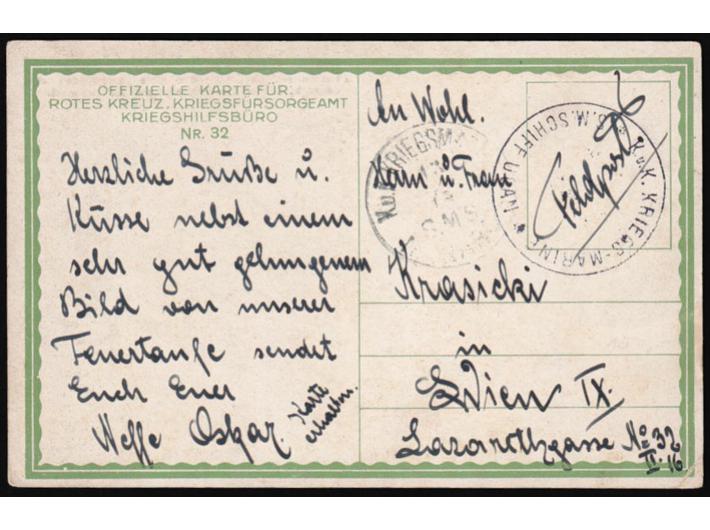 OFFIZIELLE KARTE FÜR:
ROTES KREUZ, KRIEGSFÜRSORGEAMT
KRIEGSHILFSBÜRO
NR. 32
Herzliche Grüße u.
Küsse nebst einem
sehr gut gelungenem
Bild von unserer
Feuertaufe sendet
Euch Euer
Neffe Oskar.
Karte
erhalten.
An Wohl.
Herrn u. Frau
Krasicki
in
Wien IX.
Lazarethgasse No 32
II. 16
Feldpost
K.u.K. KRIEGS-MARINE
S.M. SCHIFF
K.u.K. KRIEGSMA
S.M.S.